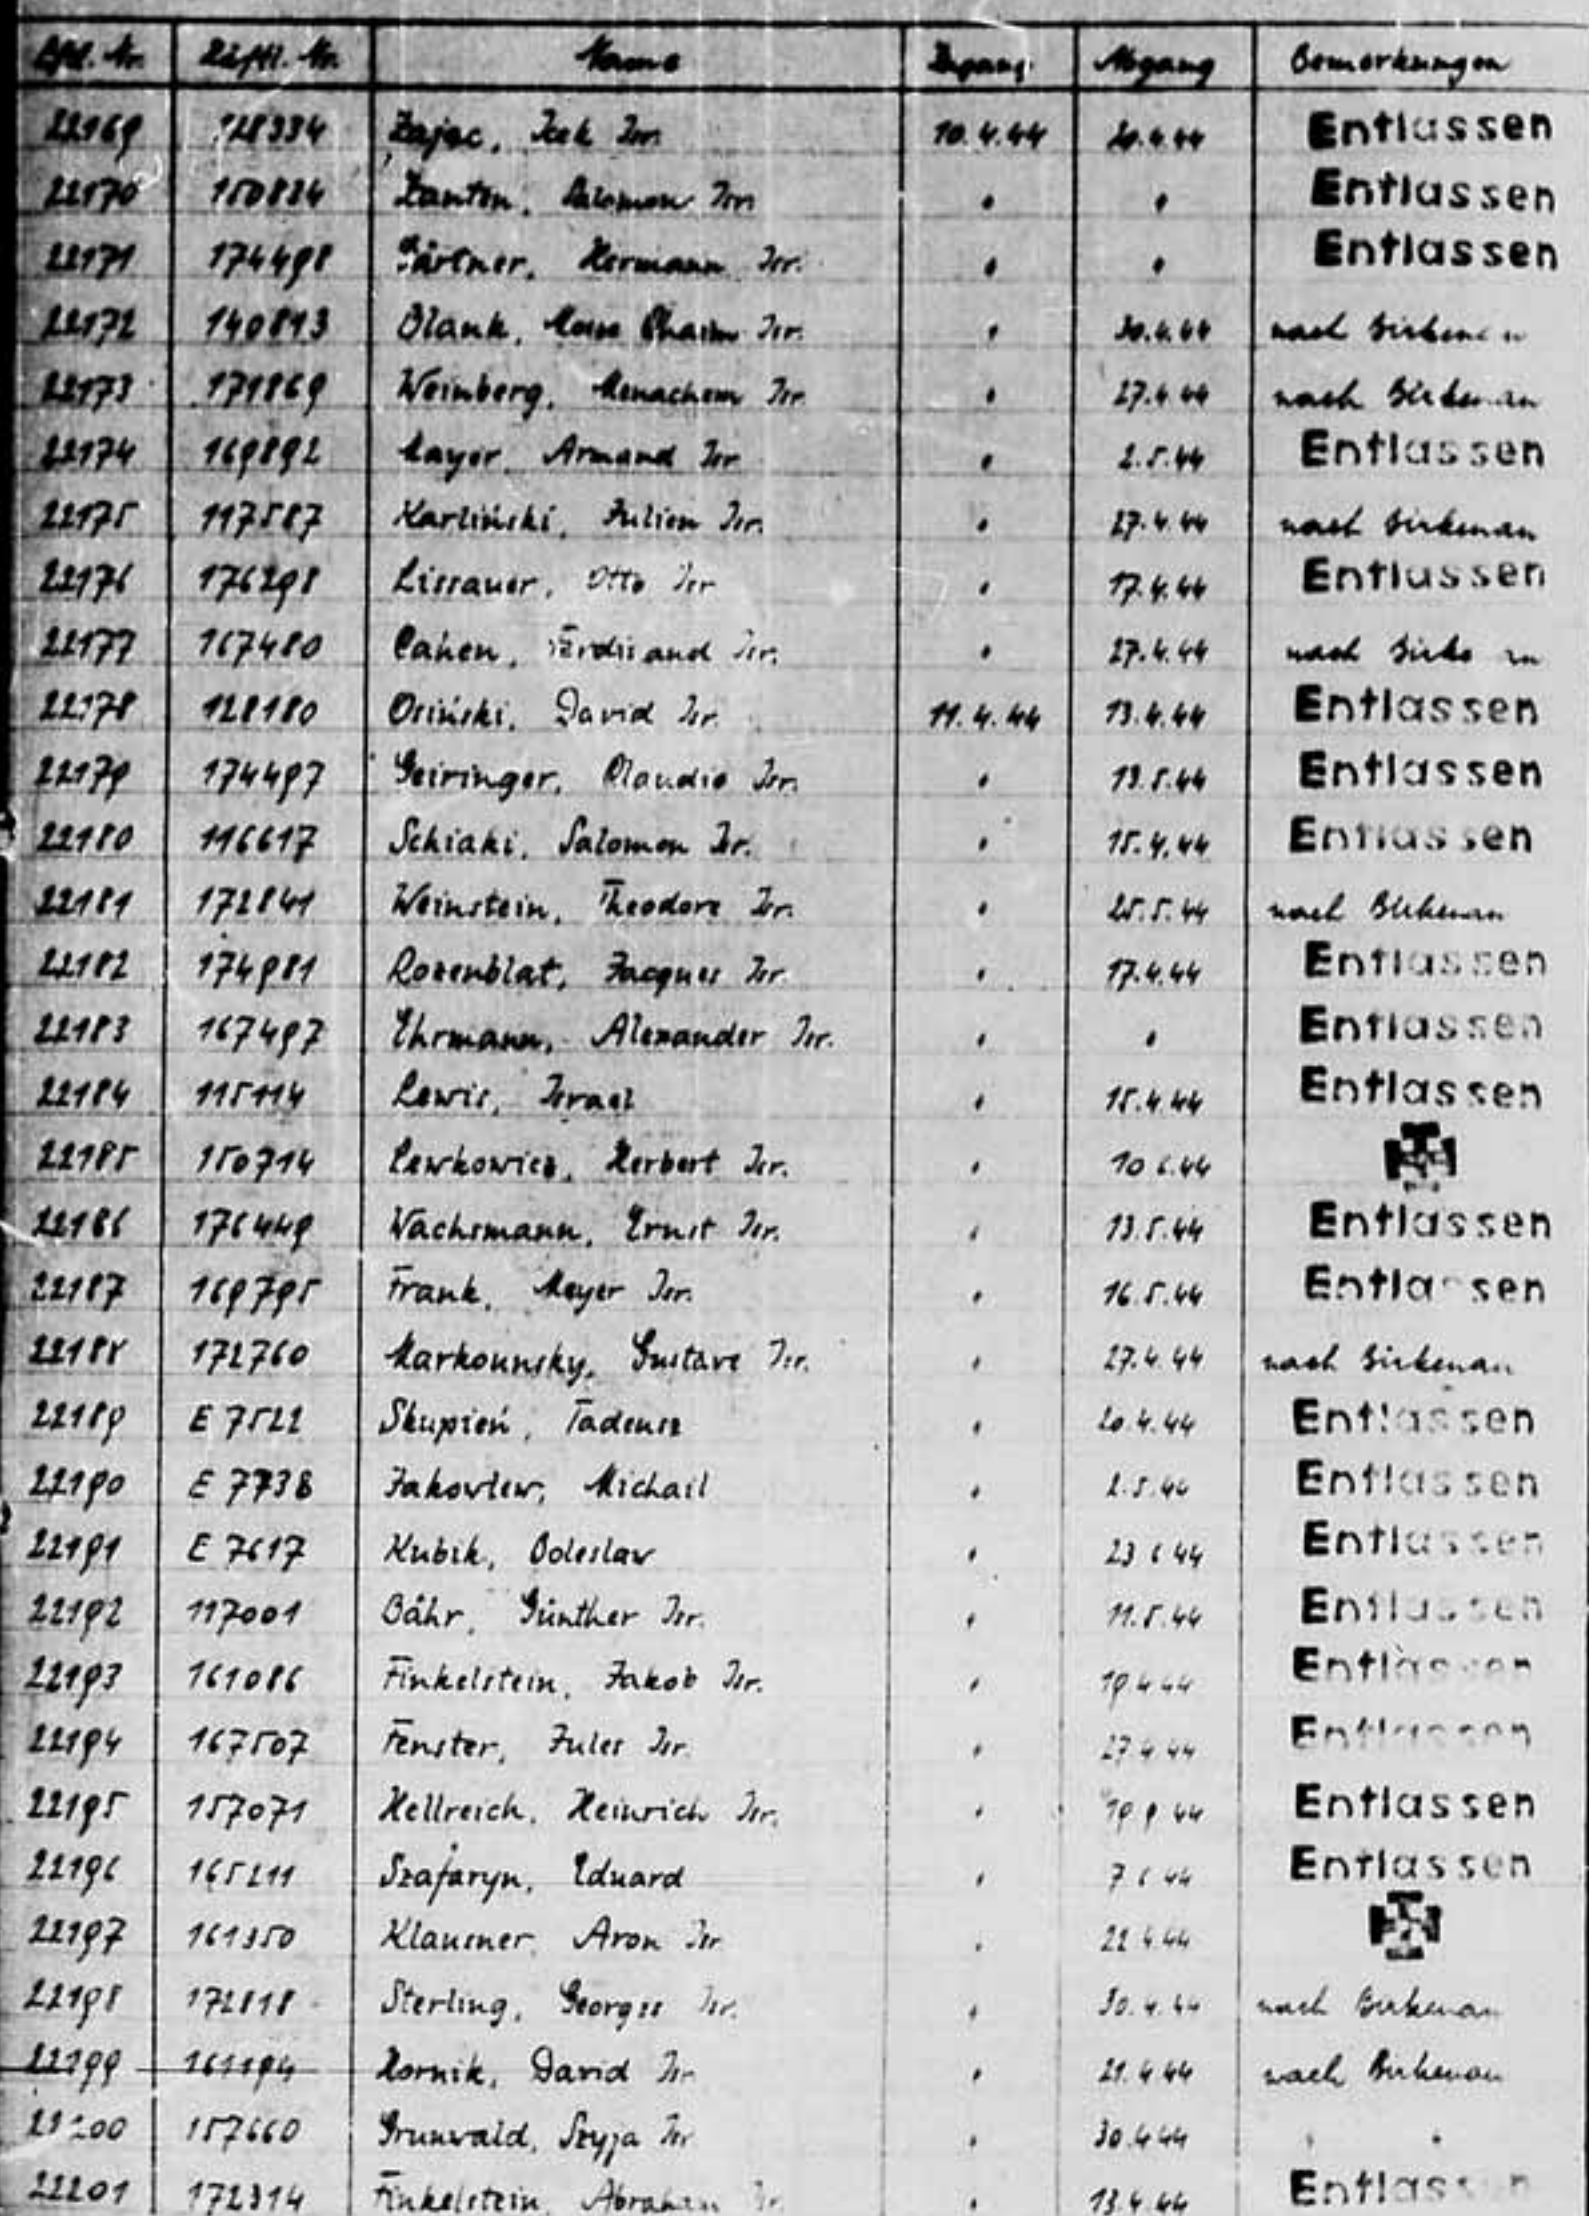 Lfd. Nr. Häftl. Nr. Name Zugang Abgang Bemerkungen
22169 128334 Zajac, Icek Isr. 10.4.44 20.4.44 Entlassen
22170 150834 Salomon Isr. " " Entlassen
22171 174498 Gärtner, Hermann Isr. " " Entlassen
22172 140813 Blank, Chaim Isr. " 30.4.44 nach Birkenau
22173 171869 Weinberg, Menachem Isr. " 27.4.44 nach Birkenau
22174 169892 Mayer, Armand Isr. " 2.5.44 Entlassen
22175 117587 Karliński, Julien Isr. " 27.4.44 nach Birkenau
22176 176298 Lissauer, Otto Isr. " 17.4.44 Entlassen
22177 167480 Cahen, Ferdinand Isr. " 27.4.44 nach Birkenau
22178 128180 Osiński, David Isr. 11.4.44 13.4.44 Entlassen
22179 174497 Geiringer, Claudio Isr. " 13.5.44 Entlassen
22180 116617 Schiaki, Salomon Isr. " 15.4.44 Entlassen
22181 172841 Weinstein, Theodore Isr. " 25.5.44 nach Birkenau
22182 174981 Rozenblat, Jacques Isr. " 17.4.44 Entlassen
22183 167497 Ehrmann, Alexander Isr. " " Entlassen
22184 115114 Lewis, Israel " 15.4.44 Entlassen
22185 150714 Lewkowicz, Herbert Isr. " 10.6.44
22186 176449 Wachsmann, Ernst Isr. " 13.5.44 Entlassen
22187 169795 Frank, Meyer Isr. " 16.5.44 Entlassen
22188 172760 Markounsky, Gustave Isr. " 27.4.44 nach Birkenau
22189 E 7522 Skupień, Tadeusz " 20.4.44 Entlassen
22190 E 7738 Jakowlew, Michail " 2.5.44 Entlassen
22191 E 7617 Kubik, Boleslaw " 23 6 44 Entlassen
22192 117001 Bähr, Günther Isr. " 11.5.44 Entlassen
22193 161086 Finkelstein, Jakob Isr. " 19 4 44 Entlassen
22194 167507 Fenster, Jules Isr. " 27 4 44 Entlassen
22195 157071 Hellreich, Heinrich Isr. " 44 Entlassen
22196 165211 Szafaryn, Eduard " 7 6 44 Entlassen
22197 161350 Klausner, Aron Isr. " 22 4 44
22198 172818 Sterling, Georges Isr. " 30.4.44 nach Birkenau
22199 161194 Hornik, David Isr. " 21.4 44 nach Birkenau
22200 157660 Grunwald, Szyja Isr. " 30.4 44 " "
22201 172314 Finkelstein, Abraham Isr. " 13.4.44 Entlassen